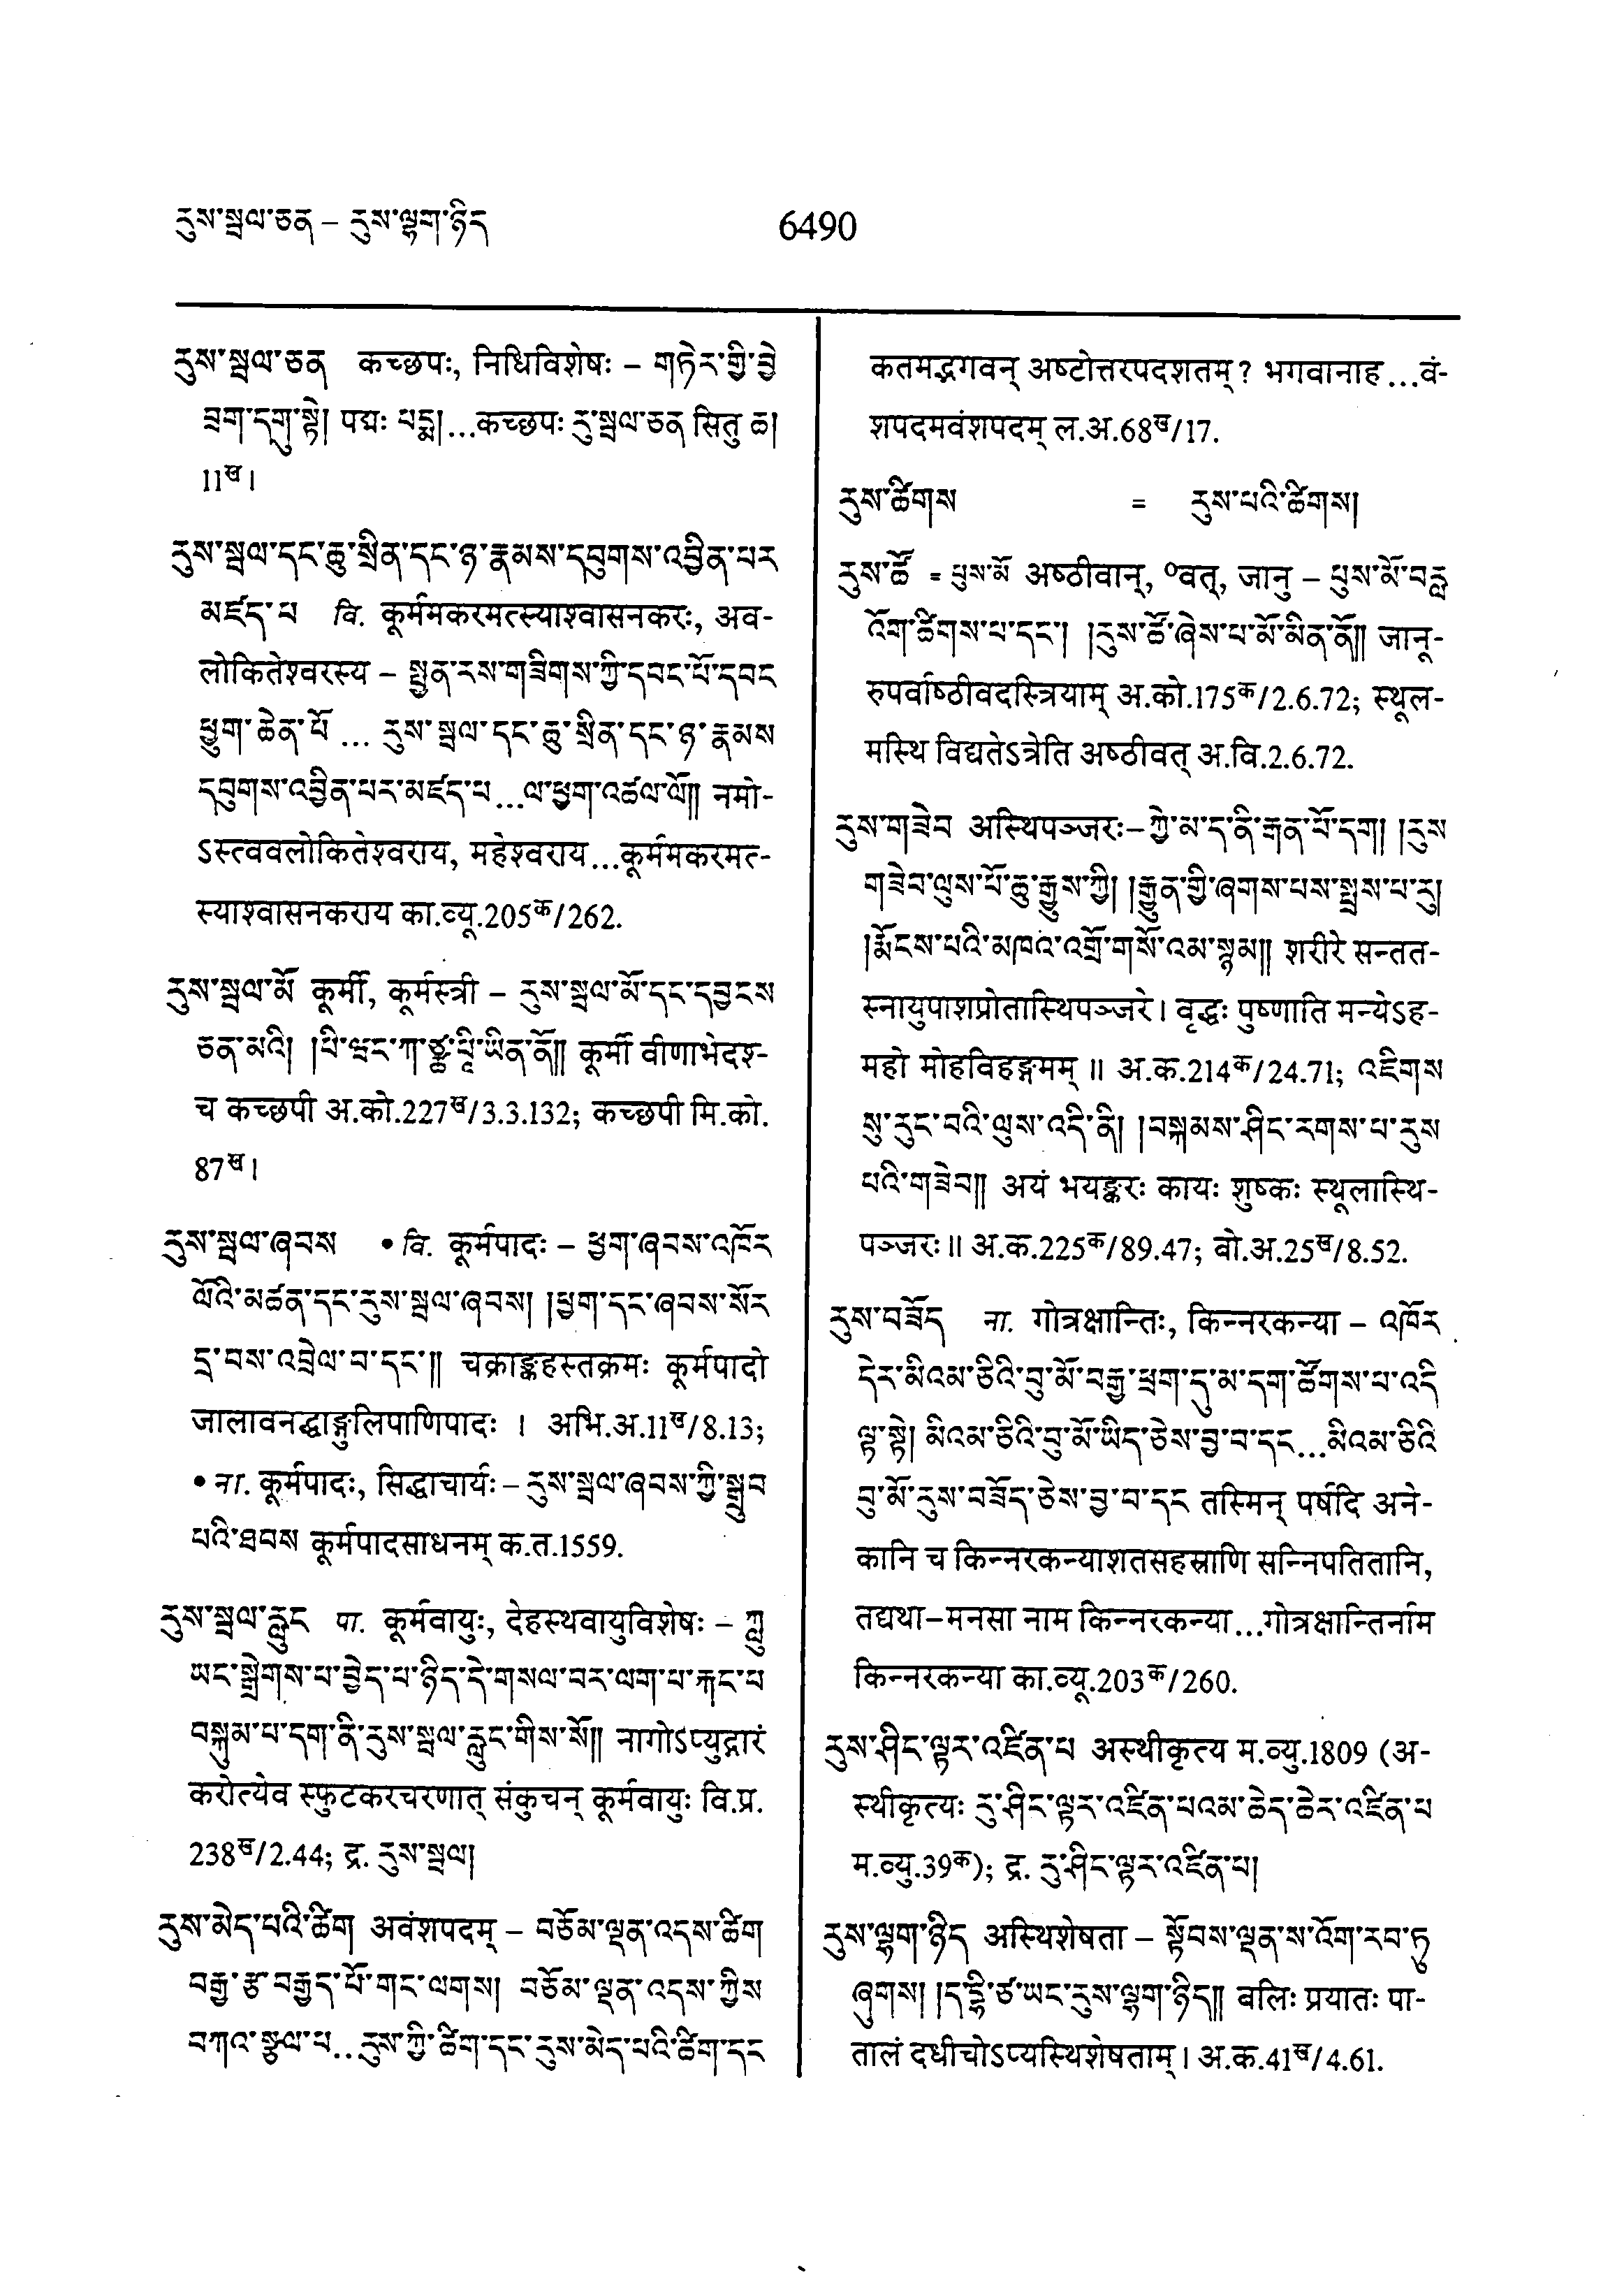 རུས་སྦལ་ཅན – རུས་ལྷག་ཉིད
6490
རུས་སྦལ་ཅན कच्छपः, निधिविशेषः – གཏེར་གྱི་བྱེ
བྲག་དགུ་སྟེ། पद्मः པདྨ།...कच्छपः རུ་སྦལ་ཅན सितु ཆ།
11ख।
རུས་སྦལ་དང་ཆུ་སྲིན་དང་ཉ་རྣམས་དབུགས་འབྱིན་པར
མཛད་པ वि. कूर्ममकरमत्स्याश्वासनकरः, अव-
लोकितेश्वरस्य – སྤྱན་རས་གཟིགས་ཀྱི་དབང་པོ་དབང
ཕྱུག་ཆེན་པོ ... རུས་སྦལ་དང་ཆུ་སྲིན་དང་ཉ་རྣམས
དབུགས་འབྱིན་པར་མཛད་པ...ལ་ཕྱག་འཚལ་ལོ།། नमो-
ऽस्त्ववलोकितेश्वराय, महेश्वराय...कूर्ममकरमत्-
स्याश्वासनकराय का.व्यू.205क/262.
རུས་སྦལ་མོ कूर्मी, कूर्मस्त्री – རུས་སྦལ་མོ་དང་དབྱངས
ཅན་མའི། །པི་ཝང་ཀ་ཙྪ་པཱི་ཡིན་ནོ།། कूर्मी वीणाभेदश्-
च कच्छपी अ.को.227ख/3.3.132; कच्छपी मि.को.
87ख।
རུས་སྦལ་ཞབས • वि. कूर्मपादः – ཕྱག་ཞབས་འཁོར
ལོའི་མཚན་དང་རུས་སྦལ་ཞབས། །ཕྱག་དང་ཞབས་སོར
དྲ་བས་འབྲེལ་བ་དང་།། चक्राङ्कहस्तक्रमः कूर्मपादो
जालावनद्धाङ्गुलिपाणिपादः । अभि.अ.11ख/8.13;
• ना. कूर्मपादः, सिद्धाचार्यः – རུས་སྦལ་ཞབས་ཀྱི་སྒྲུབ
པའི་ཐབས कूर्मपादसाधनम् क.त.1559.
རུས་སྦལ་རླུང पा. कूर्मवायुः, देहस्थवायुविशेषः – ཀླུ
ཡང་སྒྲེགས་པ་བྱེད་པ་ཉིད་དེ་གསལ་བར་ལག་པ་རྐང་པ
བསྐུམ་པ་དག་ནི་རུས་སྦལ་རླུང་གིས་སོ།། नागोऽप्युद्गारं
करोत्येव स्फुटकरचरणात् संकुचन् कूर्मवायुः वि.प्र.
238ख/2.44; द्र. རུས་སྦལ།
རུས་མེད་པའི་ཚིག अवंशपदम् – བཅོམ་ལྡན་འདས་ཚིག
བརྒྱ་རྩ་བརྒྱད་པོ་གང་ལགས། བཅོམ་ལྡན་འདས་ཀྱིས
བཀའ་སྩལ་པ...རུས་ཀྱི་ཚིག་དང་རུས་མེད་པའི་ཚིག་དང
कतमद्भगवन् अष्टोत्तरपदशतम्? भगवानाह...वं-
शपदमवंशपदम् ल.अ.68ख/17.
རུས་ཚིགས = རུས་པའི་ཚིགས།
རུས་ཚོ = པུས་མོ अष्ठीवान्, ०वत्, जानु – པུས་མོ་བརླ
འོག་ཚིགས་པ་དང་། །རུས་ཚོ་ཞེས་པ་མོ་མིན་ནོ།། जानू-
रुपर्वाष्ठीवदस्त्रियाम् अ.को.175क/2.6.72; स्थूल-
मस्थि विद्यतेऽत्रेति अष्ठीवत् अ.वि.2.6.72.
རུས་གཟེབ अस्थिपञ्जरः–ཀྱེ་མ་ད་ནི་རྒན་པོ་དག། །རུས
གཟེབ་ལུས་པོ་ཆུ་རྒྱུས་ཀྱི། །རྒྱུན་གྱི་ཞགས་པས་སྤྲས་པ་རུ།
།རྨོངས་པའི་མཁའ་འགྲོ་གསོ་འམ་སྙམ།། शरीरे सन्तत-
स्नायुपाशप्रोतास्थिपञ्जरे। वृद्धः पुष्णाति मन्येऽह-
महो मोहविहङ्गमम् ॥ अ.क.214क/24.71; འཇིགས
སུ་རུང་བའི་ལུས་འདི་ནི། །བསྐམས་ཤིང་རགས་པ་རུས
པའི་གཟེབ།། अयं भयङ्करः कायः शुष्कः स्थूलास्थि-
पञ्जरः॥ अ.क.225क/89.47; बो.अ.25ख/8.52.
རུས་བཟོད ना. गोत्रक्षान्तिः, किन्नरकन्या – འཁོར
དེར་མིའམ་ཅིའི་བུ་མོ་བརྒྱ་ཕྲག་དུ་མ་དག་ཚོགས་པ་འདི
ལྟ་སྟེ། མིའམ་ཅིའི་བུ་མོ་ཡིད་ཅེས་བྱ་བ་དང...མིའམ་ཅིའི
བུ་མོ་རུས་བཟོད་ཅེས་བྱ་བ་དང तस्मिन् पर्षदि अने-
कानि च किन्नरकन्याशतसहस्राणि सन्निपतितानि,
तद्यथा–मनसा नाम किन्नरकन्या...गोत्रक्षान्तिर्नाम
किन्नरकन्या का.व्यू.203क/260.
རུས་ཤིང་ལྟར་འཛིན་པ अस्थीकृत्य म.व्यु.1809 (अ-
स्थीकृत्यः རུ་ཤིང་ལྟར་འཛིན་པའམ་ཆེད་ཆེར་འཛིན་པ
म.व्यु.39क); द्र. རུ་ཤིང་ལྟར་འཛིན་པ།
རུས་ལྷག་ཉིད अस्थिशेषता – སྟོབས་ལྡན་ས་འོག་རབ་ཏུ
ཞུགས། །ད་དྷི་ཙ་ཡང་རུས་ལྷག་ཉིད།། बलिः प्रयातः पा-
तालं दधीचोऽप्यस्थिशेषताम्। अ.क.41ख/4.61.